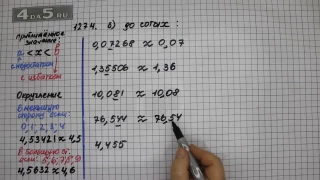 4DA5.RU
приближённое
значение:
a < x < b
с недостатком
с избытком
Округление
в меньшую
сторону если:
0, 1, 2, 3, 4
4,53421 ≈ 4,5
в большую ст.
если: 5,6,7,8,9
4,5632 ≈ 4,6
1274. б) до сотых:
0,07268 ≈ 0,07
1,35506 ≈ 1,36
10,081 ≈ 10,08
76,544 ≈ 76,54
4,455